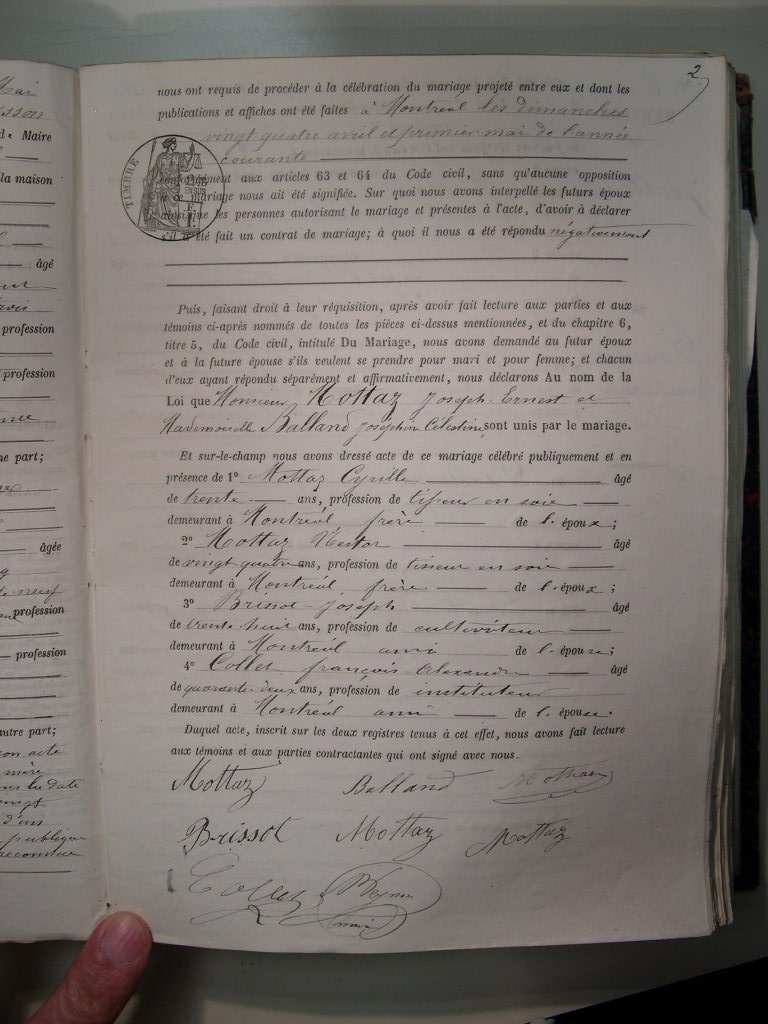 2
nous ont requis de procéder à la célébration du mariage projeté entre eux et dont les
publications et affiches ont été faites à Montréal les dimanches
vingt quatre avril et premier mai de l'année
courante
TIMBRE
aux articles 63 et 64 du Code civil, sans qu'aucune opposition
mariage nous ait été signifiée. Sur quoi nous avons interpellé les futurs époux
ainsi que les personnes autorisant le mariage et présentes à l'acte, d'avoir à déclarer
s'il a été fait un contrat de mariage; à quoi il nous a été répondu négativement
Puis, faisant droit à leur réquisition, après avoir fait lecture aux parties et aux
témoins ci-après nommés de toutes les pièces ci-dessus mentionnées, et du chapitre 6,
titre 5, du Code civil, intitulé Du Mariage, nous avons demandé au futur époux
et à la future épouse s'ils veulent se prendre pour mari et pour femme; et chacun
d'eux ayant répondu séparément et affirmativement, nous déclarons Au nom de la
Loi que Monsieur Mottaz Joseph Ernest et
Mademoiselle Balland Joséphine Célestine sont unis par le mariage.
Et sur-le-champ nous avons dressé acte de ce mariage célébré publiquement et en
présence de 1° Mottaz Cyrille âgé
de trente ans, profession de tisseur en soie
demeurant à Montréal, frère de l'époux;
2° Mottaz Nestor âgé
de vingt quatre ans, profession de tisseur en soie
demeurant à Montréal, frère de l'époux;
3° Brissot Joseph âgé
de trente huit ans, profession de cultivateur
demeurant à Montréal ami de l'épouse;
4° Collet françois Alexandre âgé
de quarante deux ans, profession de instituteur
demeurant à Montréal ami de l'épouse.
Duquel acte, inscrit sur les deux registres tenus à cet effet, nous avons fait lecture
aux témoins et aux parties contractantes qui ont signé avec nous.
Mottaz Balland
Brissot Mottaz Mottaz
Collet
Maire
la maison
âgé
profession
profession
ne part;
âgée
profession
profession
autre part;